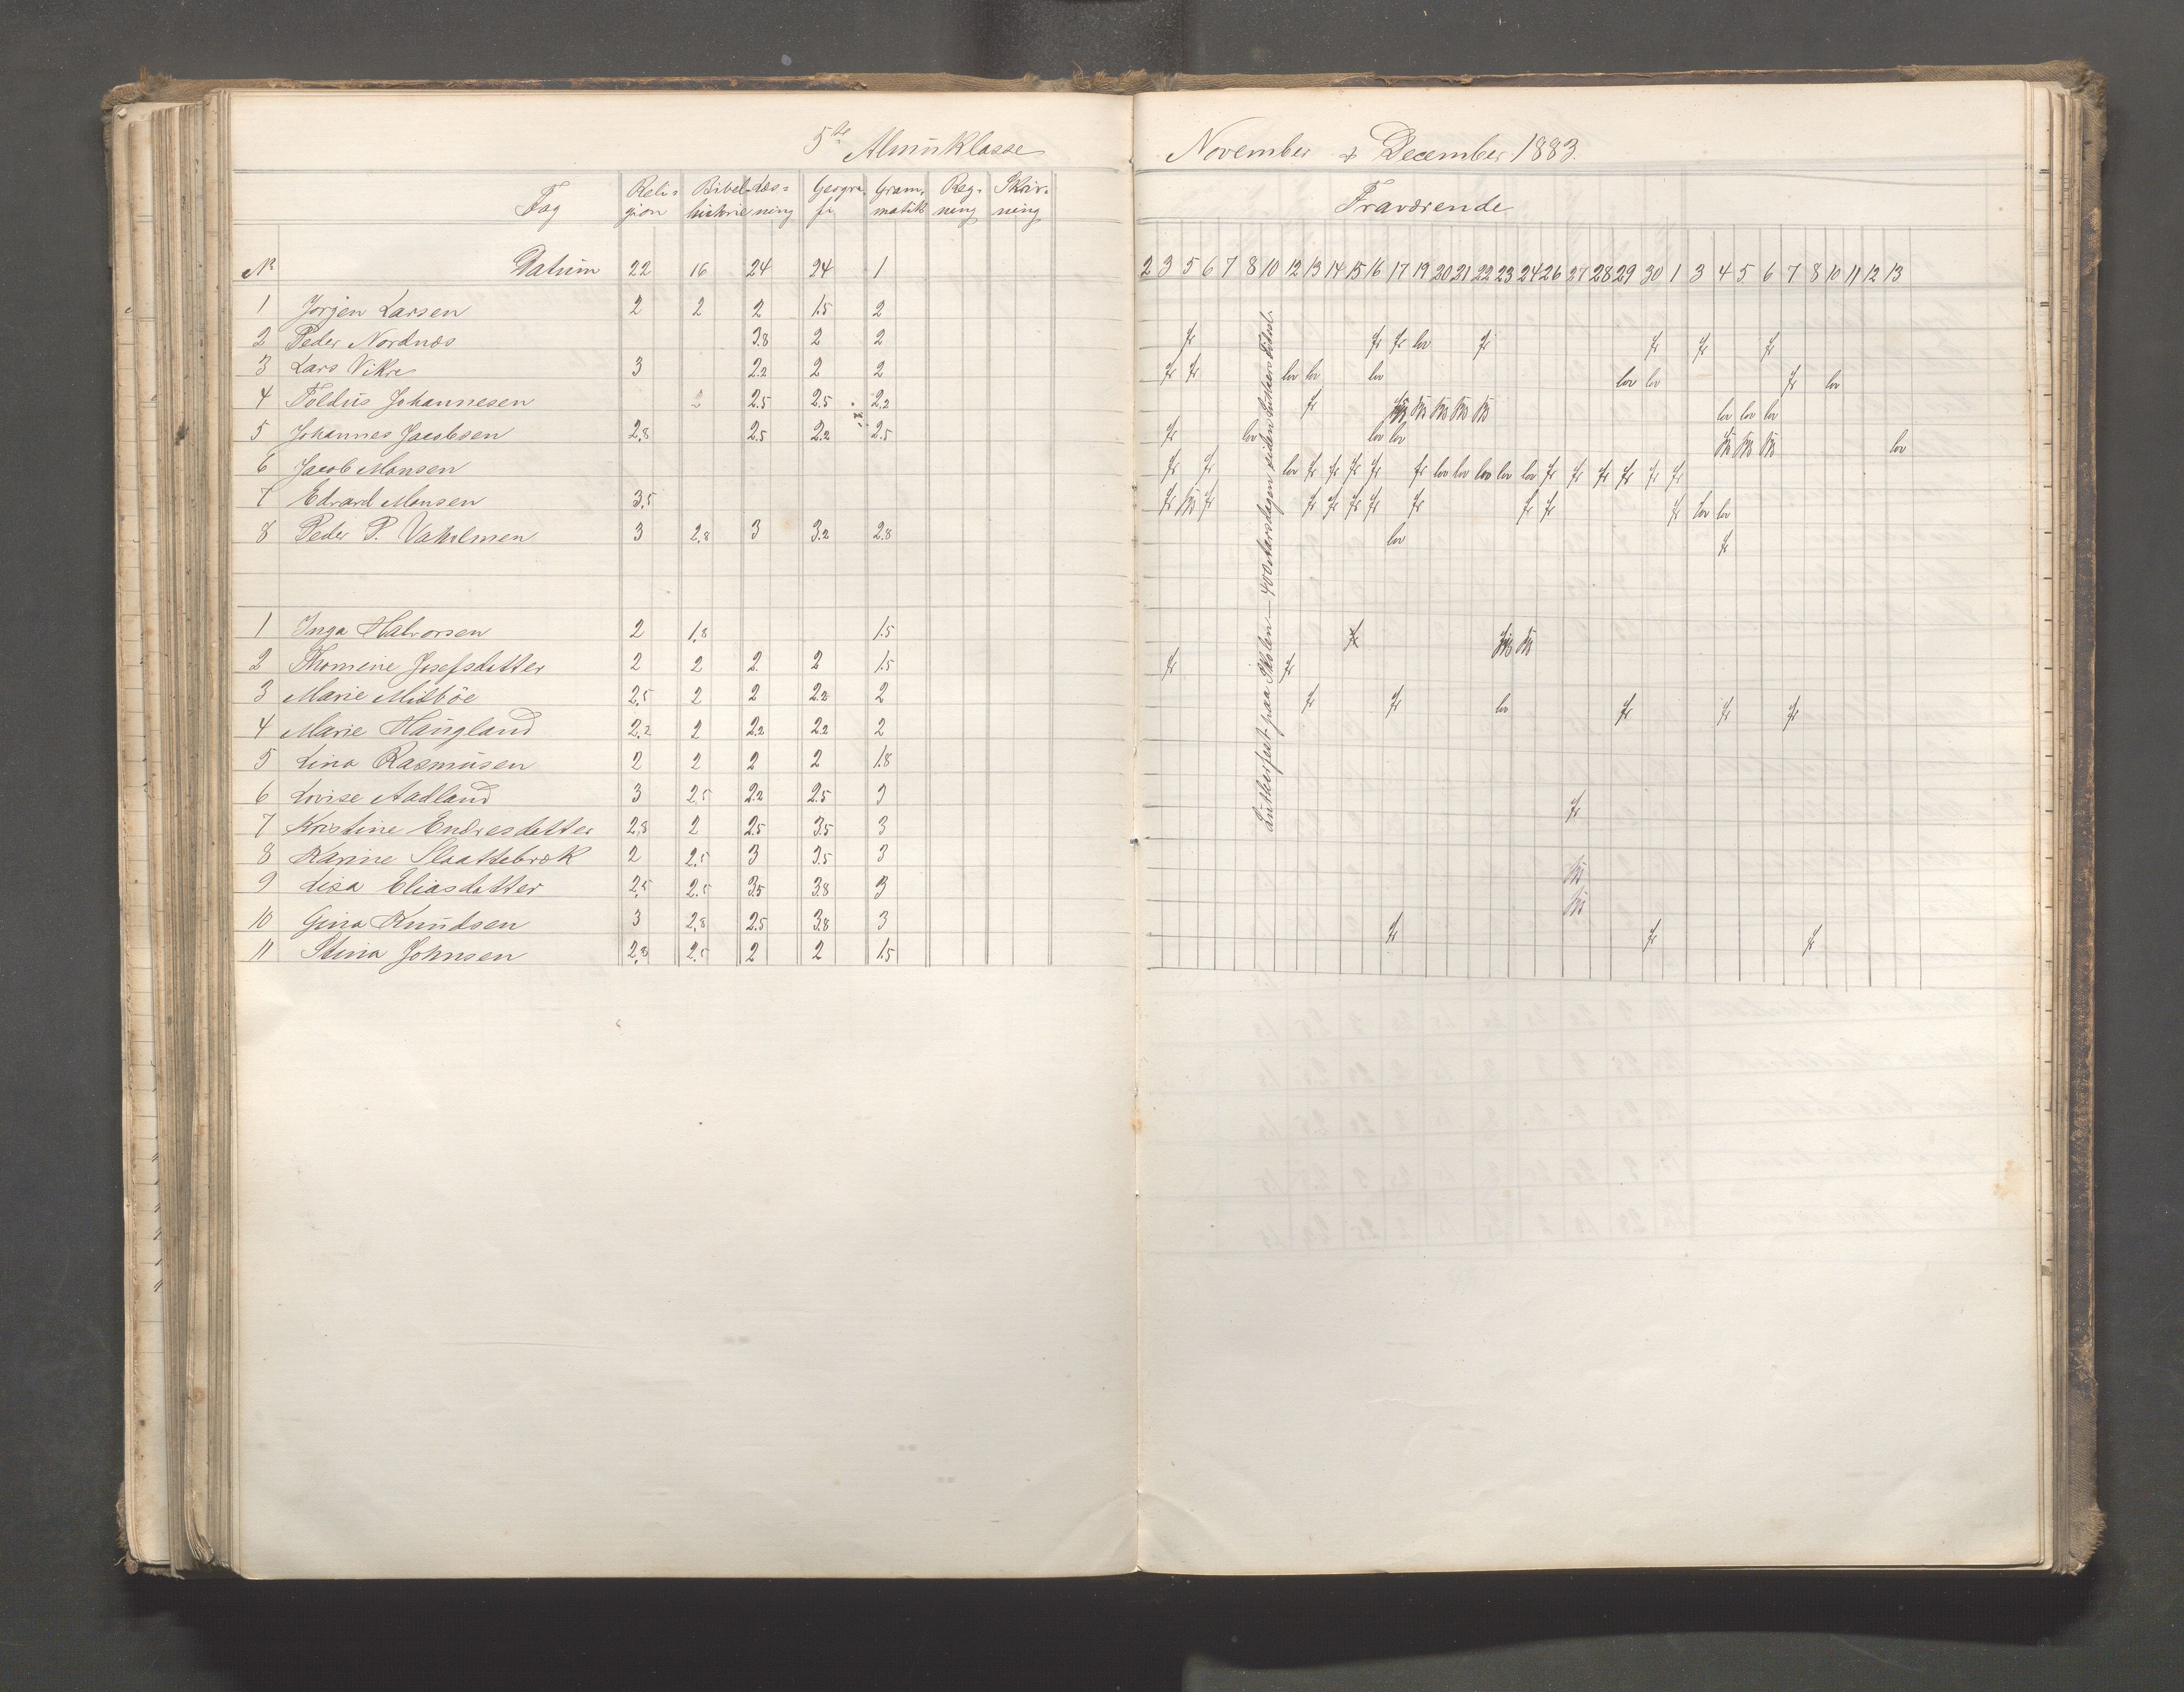 5te Alminklasse
Fag Reli= gion Bibel- historie Læs= ning Geogra- fi Gram- matik Reg- ning Skriv- ning
No Datum 22 16 24 24 1
1 Jørgen Larsen 2 2 2 1.5 2
2 Peder Nordnæs 3.8 2 2
3 Lars Vikre 3 2.2 2 2
4 Toldüs Johannesen 2 2.5 2.5 2.2
5 Johannes Jacobsen 2.8 2.5 2.2 2.5
6 Jacob Monsen
7 Edvard Monsen 3.5
8 Peder P. Vaholmen 3 2.8 3 3.2 2.8
1 Inga Halvorsen 2 1.8 1.5
2 Thomine Josefsdatter 2 2 2 2 1.5
3 Marie Misböe 2.5 2 2 2.2 2
4 Marie Haugland 2.2 2 2.2 2.2 2
5 Lina Rasmüsen 2 2 2 2 1.8
6 Lovise Aadland 3 2.5 2.2 2.5 3
7 Kristine Endresdatter 2.8 2 2.5 3.5 3
8 Karine Slaattebræk 2 2.5 3 3.5 3
9 Lisa Eliasdatter 2.5 2.5 3.5 3.8 3
10 Gina Knüdsen 3 2.8 2.5 3.8 3
11 Stina Johnsen 2.8 2.5 2 2 1.5
November & December 1883.
Fraværende
2 3 5 6 7 8 10 12 13 14 15 16 17 19 20 21 22 23 24 26 27 28 29 30 1 3 4 5 6 7 8 10 11 12 13
fr fr fr lov fr fr fr fr
fr fr lov lov lov lov lov fr lov
fr lov lov lov
fr lov lov lov lov
fr fr lov fr fr fr fr fr lov lov lov lov lov fr fr fr fr fr fr
fr fr fr fr fr fr fr fr fr fr lov lov
lov fr
fr
fr fr
fr fr lov fr fr fr
fr
fr fr fr
Lutherfest paa Skolen — 400 Aarsdagen siden Luthers Fødsel.